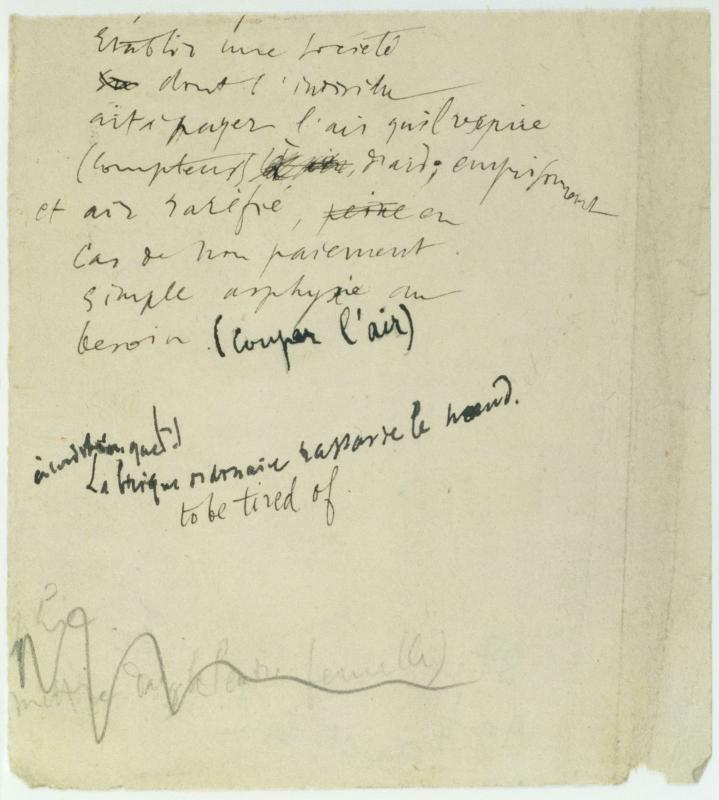 Etablir une société
dont l'individu
ait à payer l'air qu'il respire
(compteurs) d'air; emprisonnement
et air raréfié, peine en
cas de non paiement
simple asphyxie au
besoin (couper l'air)
à condition que
La brique ordinaire rassasie le nœud.
to be tired of
mettre